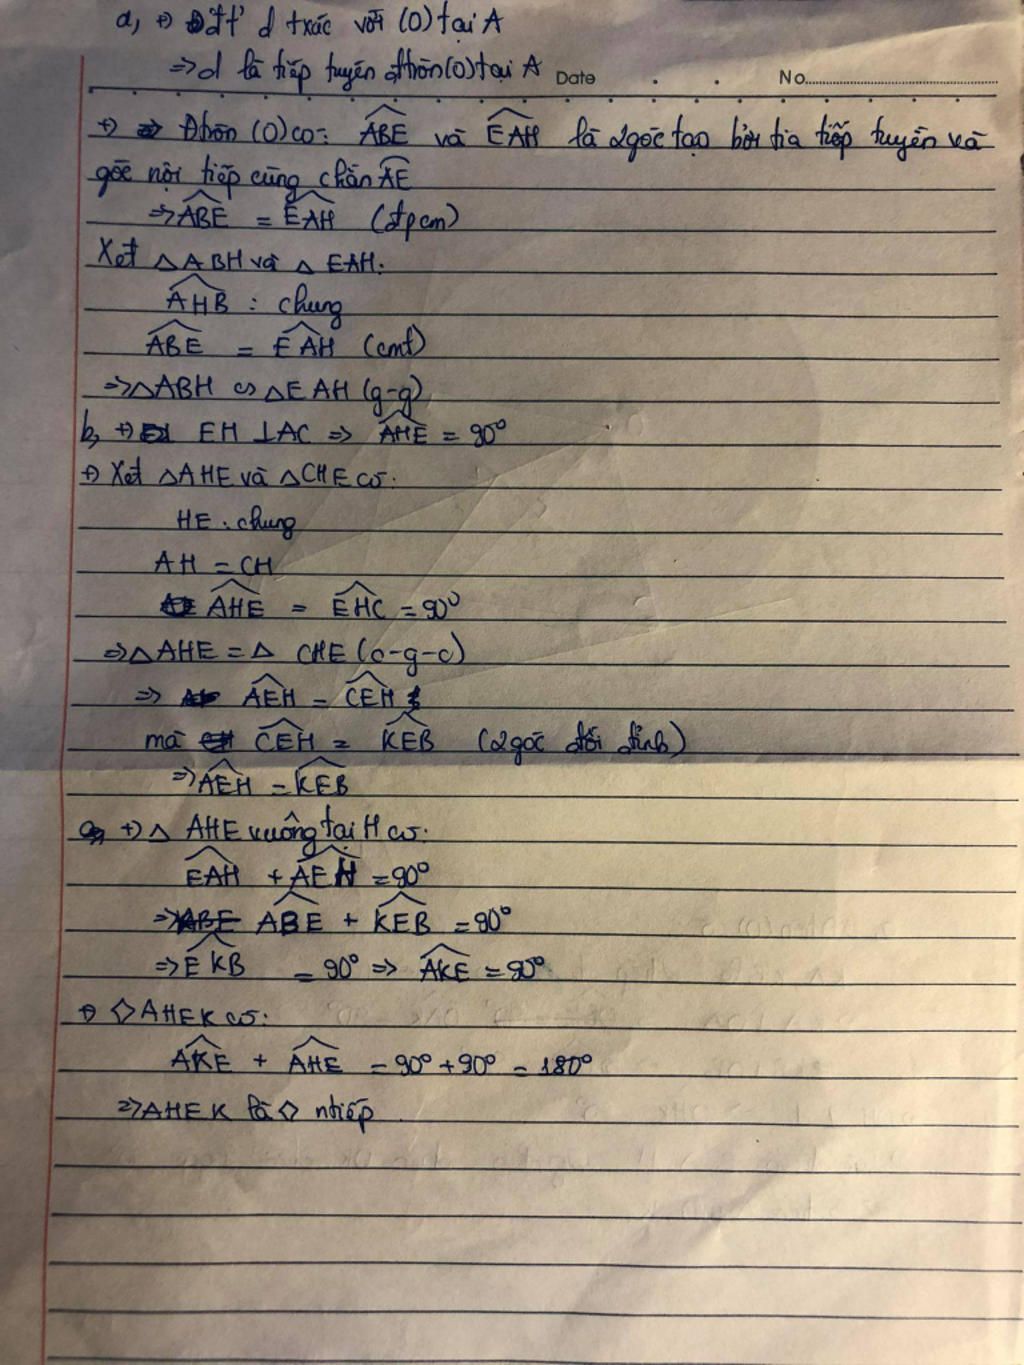 a, +) đt' d txúc với (O) tại A
⇒ d là tiếp tuyến đtròn (O) tại A Date . . No
+) ⇒ Đtròn (O) có: ABE và EAH là 2 góc tạo bởi tia tiếp tuyến và
góc nội tiếp cùng chắn AE
⇒ ABE = EAH (đpcm)
Xét △ABH và △EAH:
AHB : chung
ABE = EAH (cmt)
⇒ △ABH ∽ △EAH (g-g)
b, +) EH ⊥ AC ⇒ AHE = 90°
+) Xét △AHE và △CHE có:
HE : chung
AH = CH
AHE = EHC = 90°
⇒ △AHE = △ CHE (c-g-c)
⇒ AEH = CEH
mà CEH = KEB (2 góc đối đỉnh)
⇒ AEH = KEB
+) △ AHE vuông tại H có:
EAH + AEH = 90°
⇒ ABE + KEB = 90°
⇒ EKB = 90° ⇒ AKE = 90°
+) ◇AHEK có:
AKE + AHE = 90° + 90° = 180°
⇒ AHEK là ◇ ntiếp